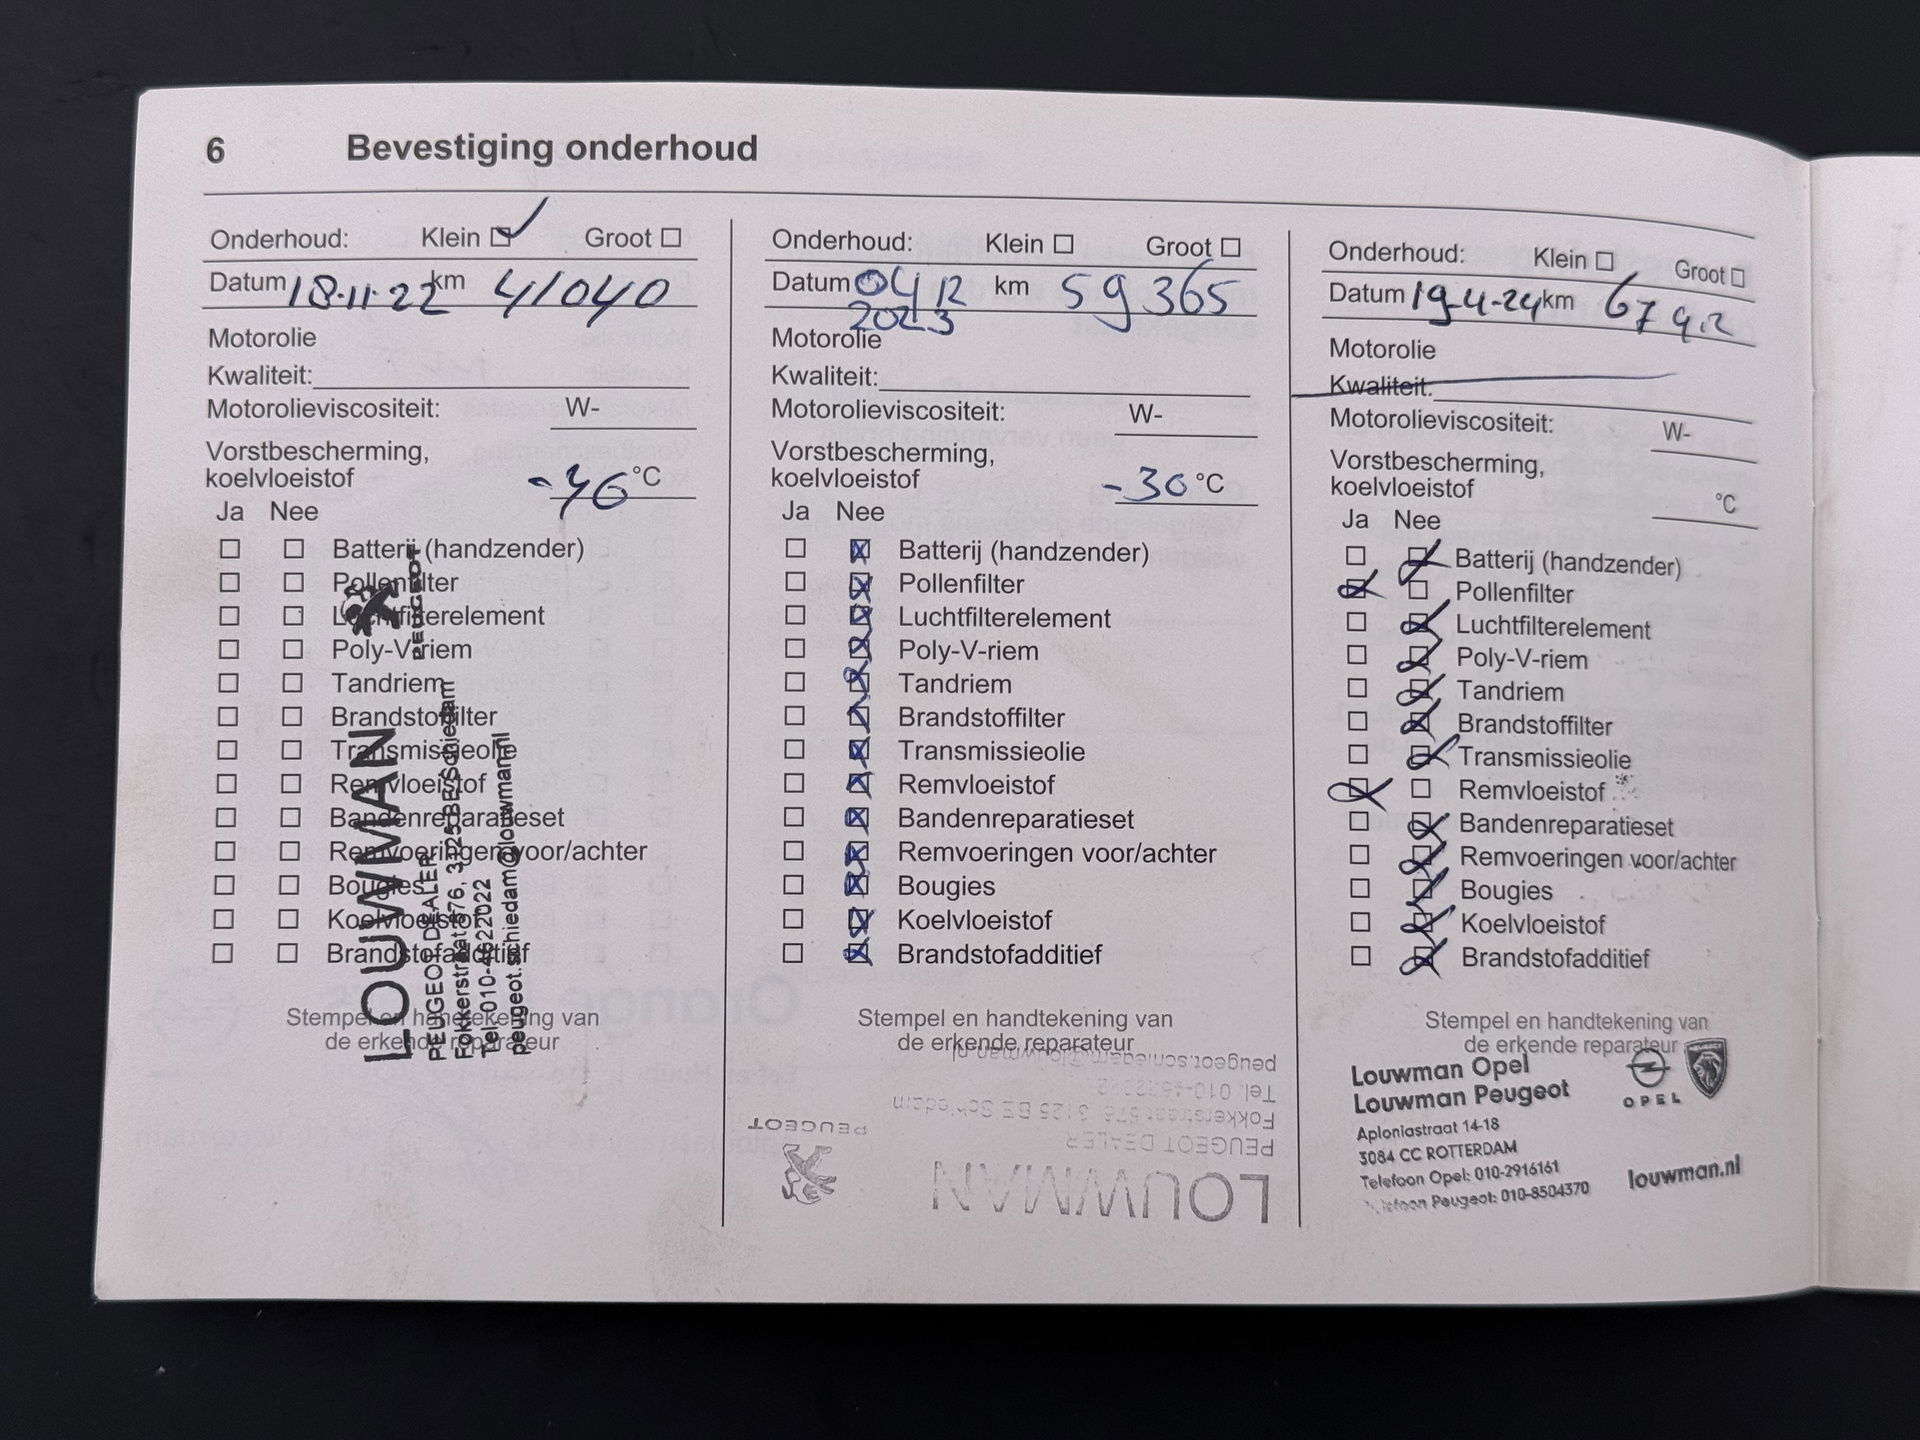 6 Bevestiging onderhoud
Onderhoud: Klein Groot
Datum 18-11-22 km 41040
Motorolie
Kwaliteit:
Motorolieviscositeit: W-
Vorstbescherming,
koelvloeistof °C
Ja Nee
Batterij (handzender)
Pollenfilter
Luchtfilterelement
Poly-V-riem
Tandriem
Brandstoffilter
Transmissieolie
Remvloeistof
Bandenreparatieset
Remvoeringen voor/achter
Bougies
Koelvloeistof
Brandstofadditief
Stempel en handtekening van
de erkende reparateur
PEUGEOT
LOUWMAN
PEUGEOT DEALER
Fokkerstraat 576, 3125 BE Schiedam
Tel. 010-4622022
peugeot.schiedam@louwman.nl
Onderhoud: Klein Groot
Datum 04 12 km 59365
2023
Motorolie
Kwaliteit:
Motorolieviscositeit: W-
Vorstbescherming,
koelvloeistof -30 °C
Ja Nee
Batterij (handzender)
Pollenfilter
Luchtfilterelement
Poly-V-riem
Tandriem
Brandstoffilter
Transmissieolie
Remvloeistof
Bandenreparatieset
Remvoeringen voor/achter
Bougies
Koelvloeistof
Brandstofadditief
Stempel en handtekening van
de erkende reparateur
LOUWMAN
PEUGEOT
PEUGEOT DEALER
Fokkerstraat 576, 3125 BE Schiedam
Tel. 010-4622022
peugeot.schiedam@louwman.nl
Onderhoud: Klein Groot
Datum 19-4-24 km
Motorolie
Kwaliteit:
Motorolieviscositeit: W-
Vorstbescherming,
koelvloeistof °C
Ja Nee
Batterij (handzender)
Pollenfilter
Luchtfilterelement
Poly-V-riem
Tandriem
Brandstoffilter
Transmissieolie
Remvloeistof
Bandenreparatieset
Remvoeringen voor/achter
Bougies
Koelvloeistof
Brandstofadditief
Stempel en handtekening van
de erkende reparateur
Louwman Opel
Louwman Peugeot
OPEL
PEUGEOT
Aploniastraat 14-18
3084 CC ROTTERDAM
Telefoon Opel: 010-2916161
Telefoon Peugeot: 010-8504370
louwman.nl